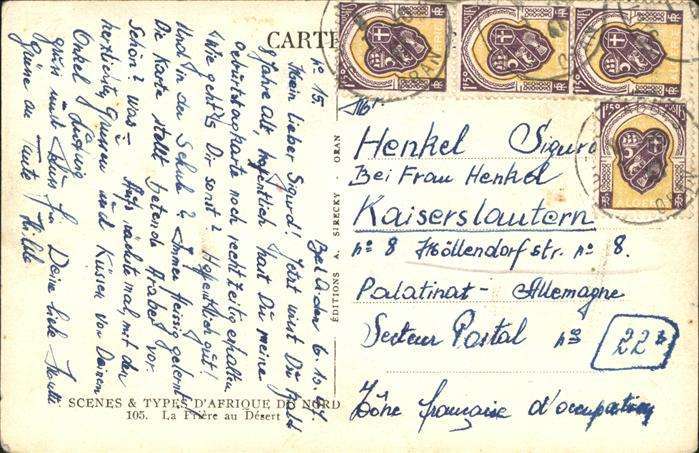 CARTE
No 15.
Bel Abbès 6.10.47.
Mein lieber Sigurd! Jetzt wirst Du bald
9 Jahre alt, hoffentlich hast Du meine
Geburtstagkarte noch rechtzeitig erhalten
Wie geht's Dir sonst? Hoffentlich gut!
Und in der Schule? Immer fleissig gelernt
Die Karte stellt betende Araber vor.
Schön? was -
nächste mal, mit den
herzlichsten Grüssen und Küssen von Deinem
Onkel Ludwig
Deine liebe Mutti
Tante Hilde
EDITIONS A. SIRECKY . ORAN
SCENES & TYPES D'AFRIQUE DU NORD
105. La Prière au Désert
1F50
ALGERIE
RF
ORAN
Henkel Sigurd
Bei Frau Henkel
Kaiserslautern
no 8 Möllendorfstr. no 8.
Palatinat - Allemagne
Secteur Postal no 22a
Zône française d'occupation